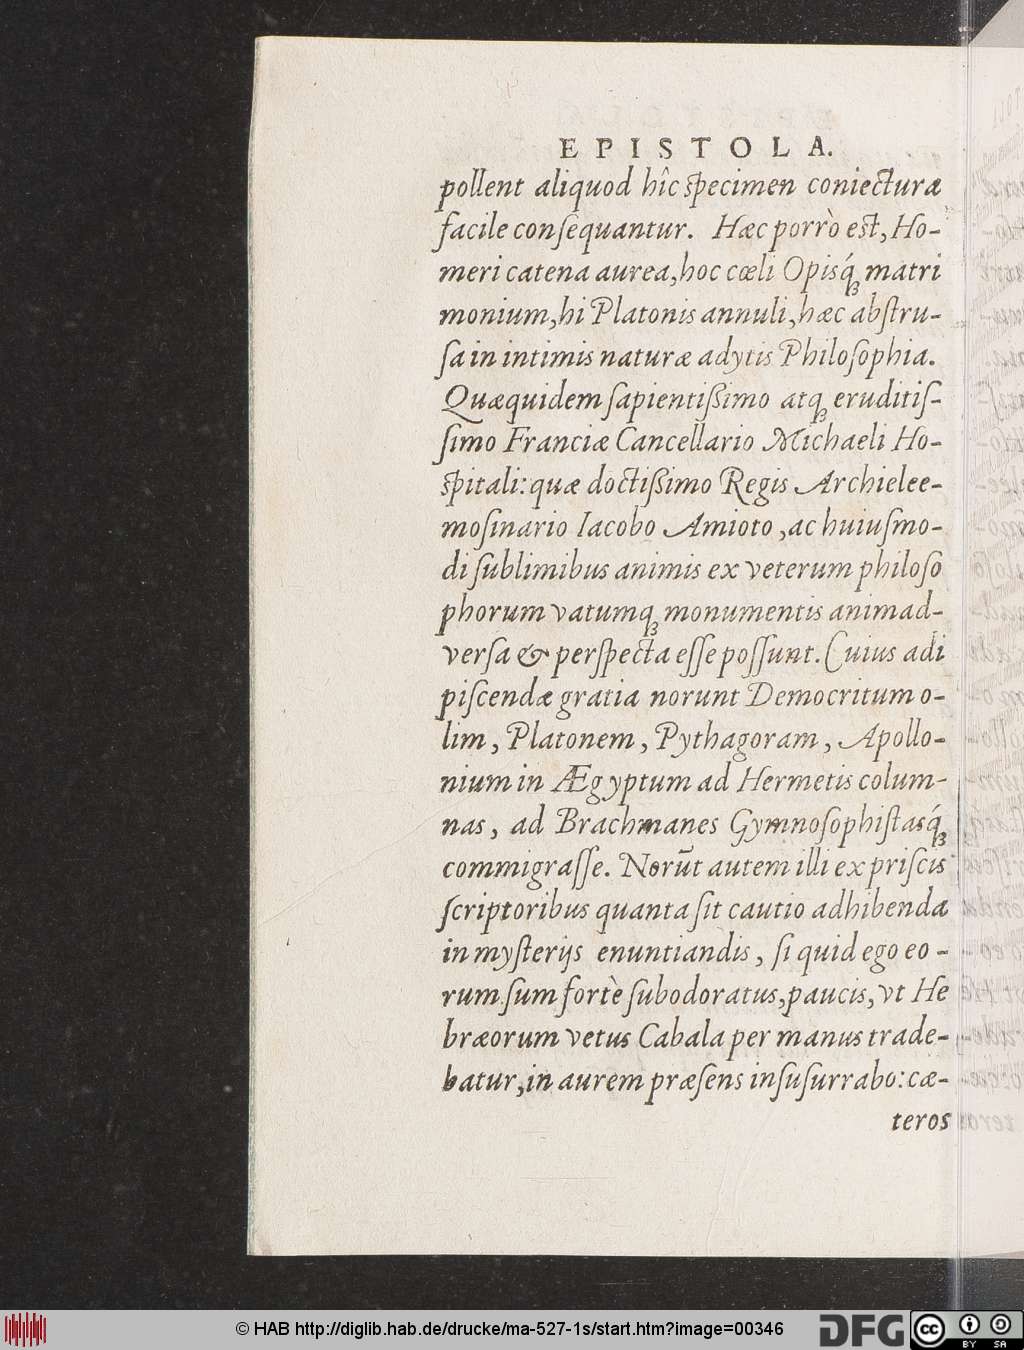 EPISTOLA.
pollent aliquod hîc specimen coniecturæ
facile consequantur. Hæc porrò est, Ho-
meri catena aurea, hoc cœli Opisq́; matri
monium, hi Platonis annuli, hæc abstru-
sa in intimis naturæ adytis Philosophia.
Quæquidem sapientißimo atq; eruditis-
simo Franciæ Cancellario Michaeli Ho-
spitali: quæ doctißimo Regis Archielee-
mosinario Iacobo Amioto, ac huiusmo-
di sublimibus animis ex veterum philoso
phorum vatumq; monumentis animad-
versa & perspecta esse possunt. Cuius adi
piscendæ gratia norunt Democritum o-
lim, Platonem, Pythagoram, Apollo-
nium in Ægyptum ad Hermetis colum-
nas, ad Brachmanes Gymnosophistasq́;
commigrasse. Norūt autem illi ex priscis
scriptoribus quanta sit cautio adhibenda
in mysterijs enuntiandis, si quid ego eo-
rum sum fortè subodoratus, paucis, vt He
bræorum vetus Cabala per manus trade-
batur, in aurem præsens insusurrabo: cæ-
teros
© HAB http://diglib.hab.de/drucke/ma-527-1s/start.htm?image=00346
DFG cc BY SA